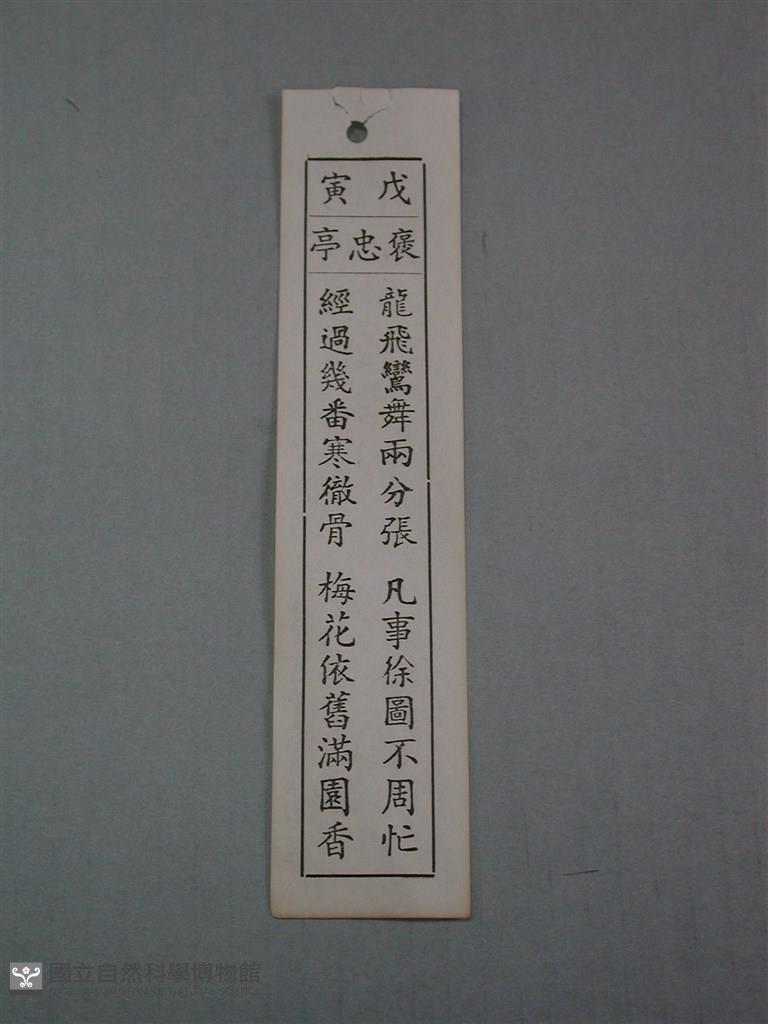 戊寅
褒忠亭
龍飛鸞舞兩分張 凡事徐圖不周忙
經過幾番寒徹骨 梅花依舊滿園香
國立自然科學博物館
NATIONAL MUSEUM OF NATURAL SCIENCE